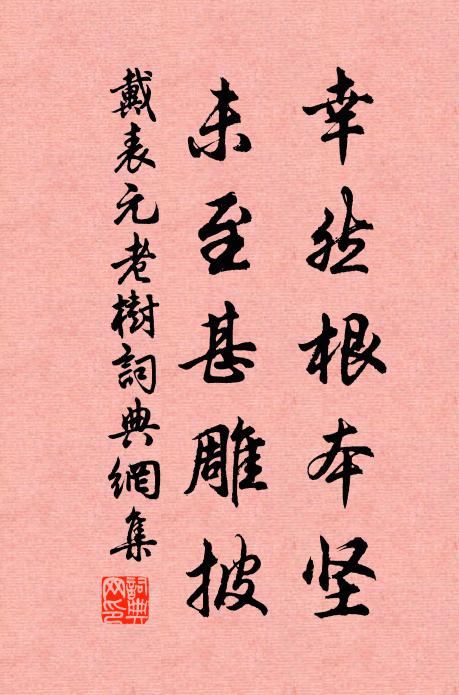 幸然根本坚
未至甚雕披
戴表元老樹詞典網集
詞典网印